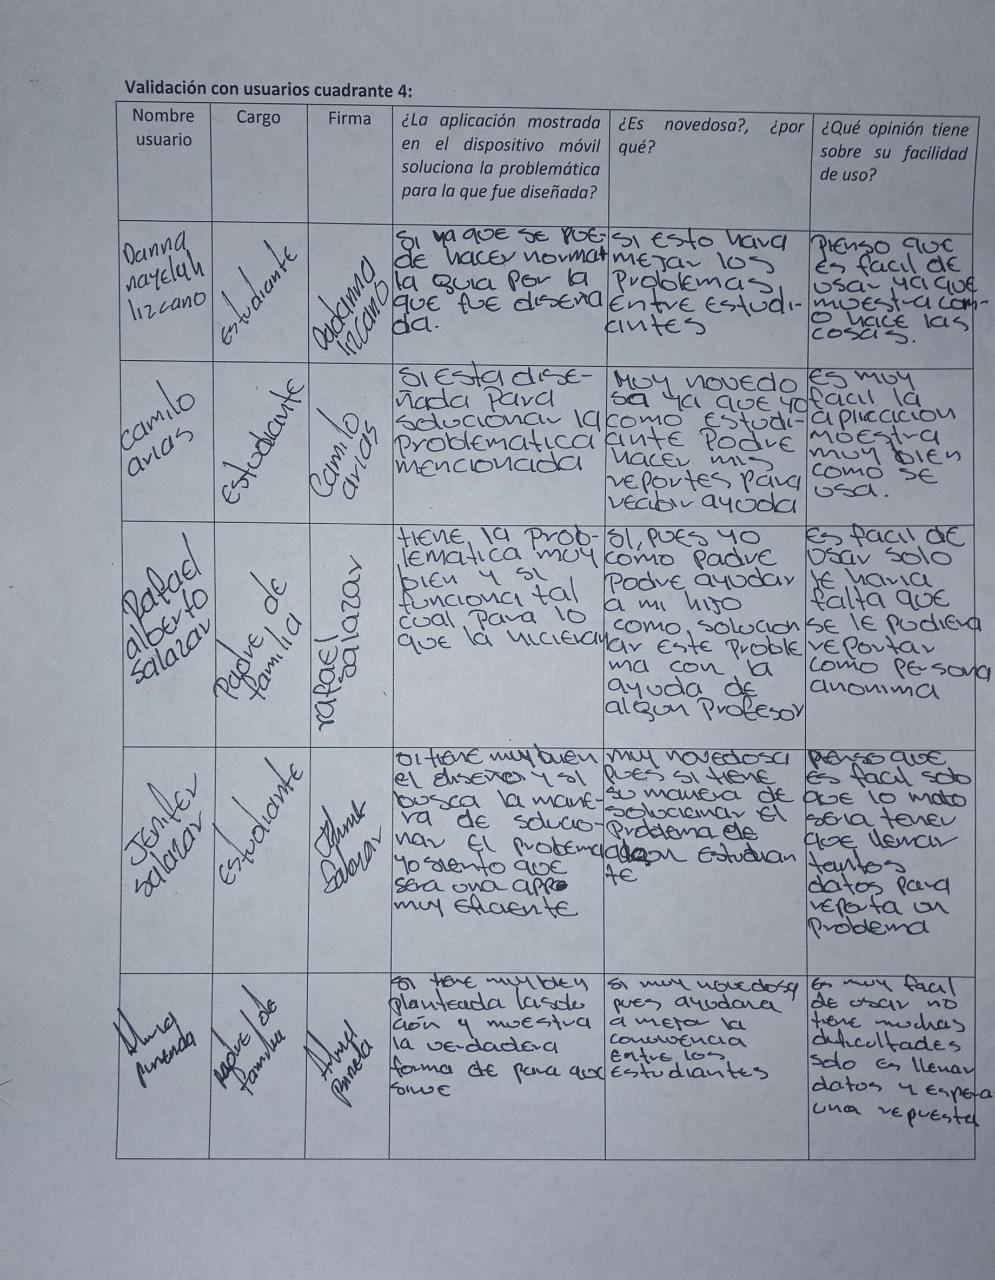 Validación con usuarios cuadrante 4:
Nombre
usuario
Cargo
Firma
¿La aplicación mostrada
en el dispositivo móvil
soluciona la problemática
para la que fue diseñada?
¿Es novedosa?, ¿por
qué?
¿Qué opinión tiene
sobre su facilidad
de uso?
Danna
nayeluh
lizcano
Estudiante
lizcano
Si ya que se pue-
de hacer normal
la guia por la
que fue diseña
da.
si esto hara
mejar los
Problemas
Entre Estudi-
antes
Pienso que
es facil de
usar ya que
muestra com-
o hace las
cosas.
camilo
arias
Estudiante
Camilo
arias
Si Esta dise-
ñada Para
solucionar la
problematica
mencionada
Muy novedo
sa ya que yo
como Estudi-
ante Podre
hacer mis
reportes para
recibir ayuda
Es muy
facil la
aplicacion
muestra
muy bien
como se
usa.
Rafael
alberto
salazar
Padre de
familia
rafael
salazar
tiene la Prob-
lematica muy
bien y si
funciona tal
cual Para lo
que la hicieran
Si, pues yo
como Padre
Podre ayudar
a mi hijo
como solucion
ar Este Proble
ma con la
ayuda de
algun Profesor
Es facil de
usar solo
le haria
falta que
se le pudiera
reportar
como Persona
anonima
Jenifer
salazar
Estudiante
Salazar
Si tiene muy buen
el diseño y si
busca la mane-
ra de solucio-
nar El problema
yo siento que
sera una app
muy Eficiente
muy novedosa
pues si tiene
su manera de
solucionar el
Problema de
algun Estudian
te
Pienso que
es facil solo
que lo malo
seria tener
que llenar
tantos
datos para
reporta un
Problema
Padre de
familia
Si tiene muy bien
planteada la solu
ción y muestra
la verdadera
forma de para que
sirve
Si muy novedosa
pues ayudara
a mejor la
convivencia
entre los
Estudiantes
Es muy facil
de usar no
tiene muchas
dificultades
solo es llenar
datos y espera
una repuesta